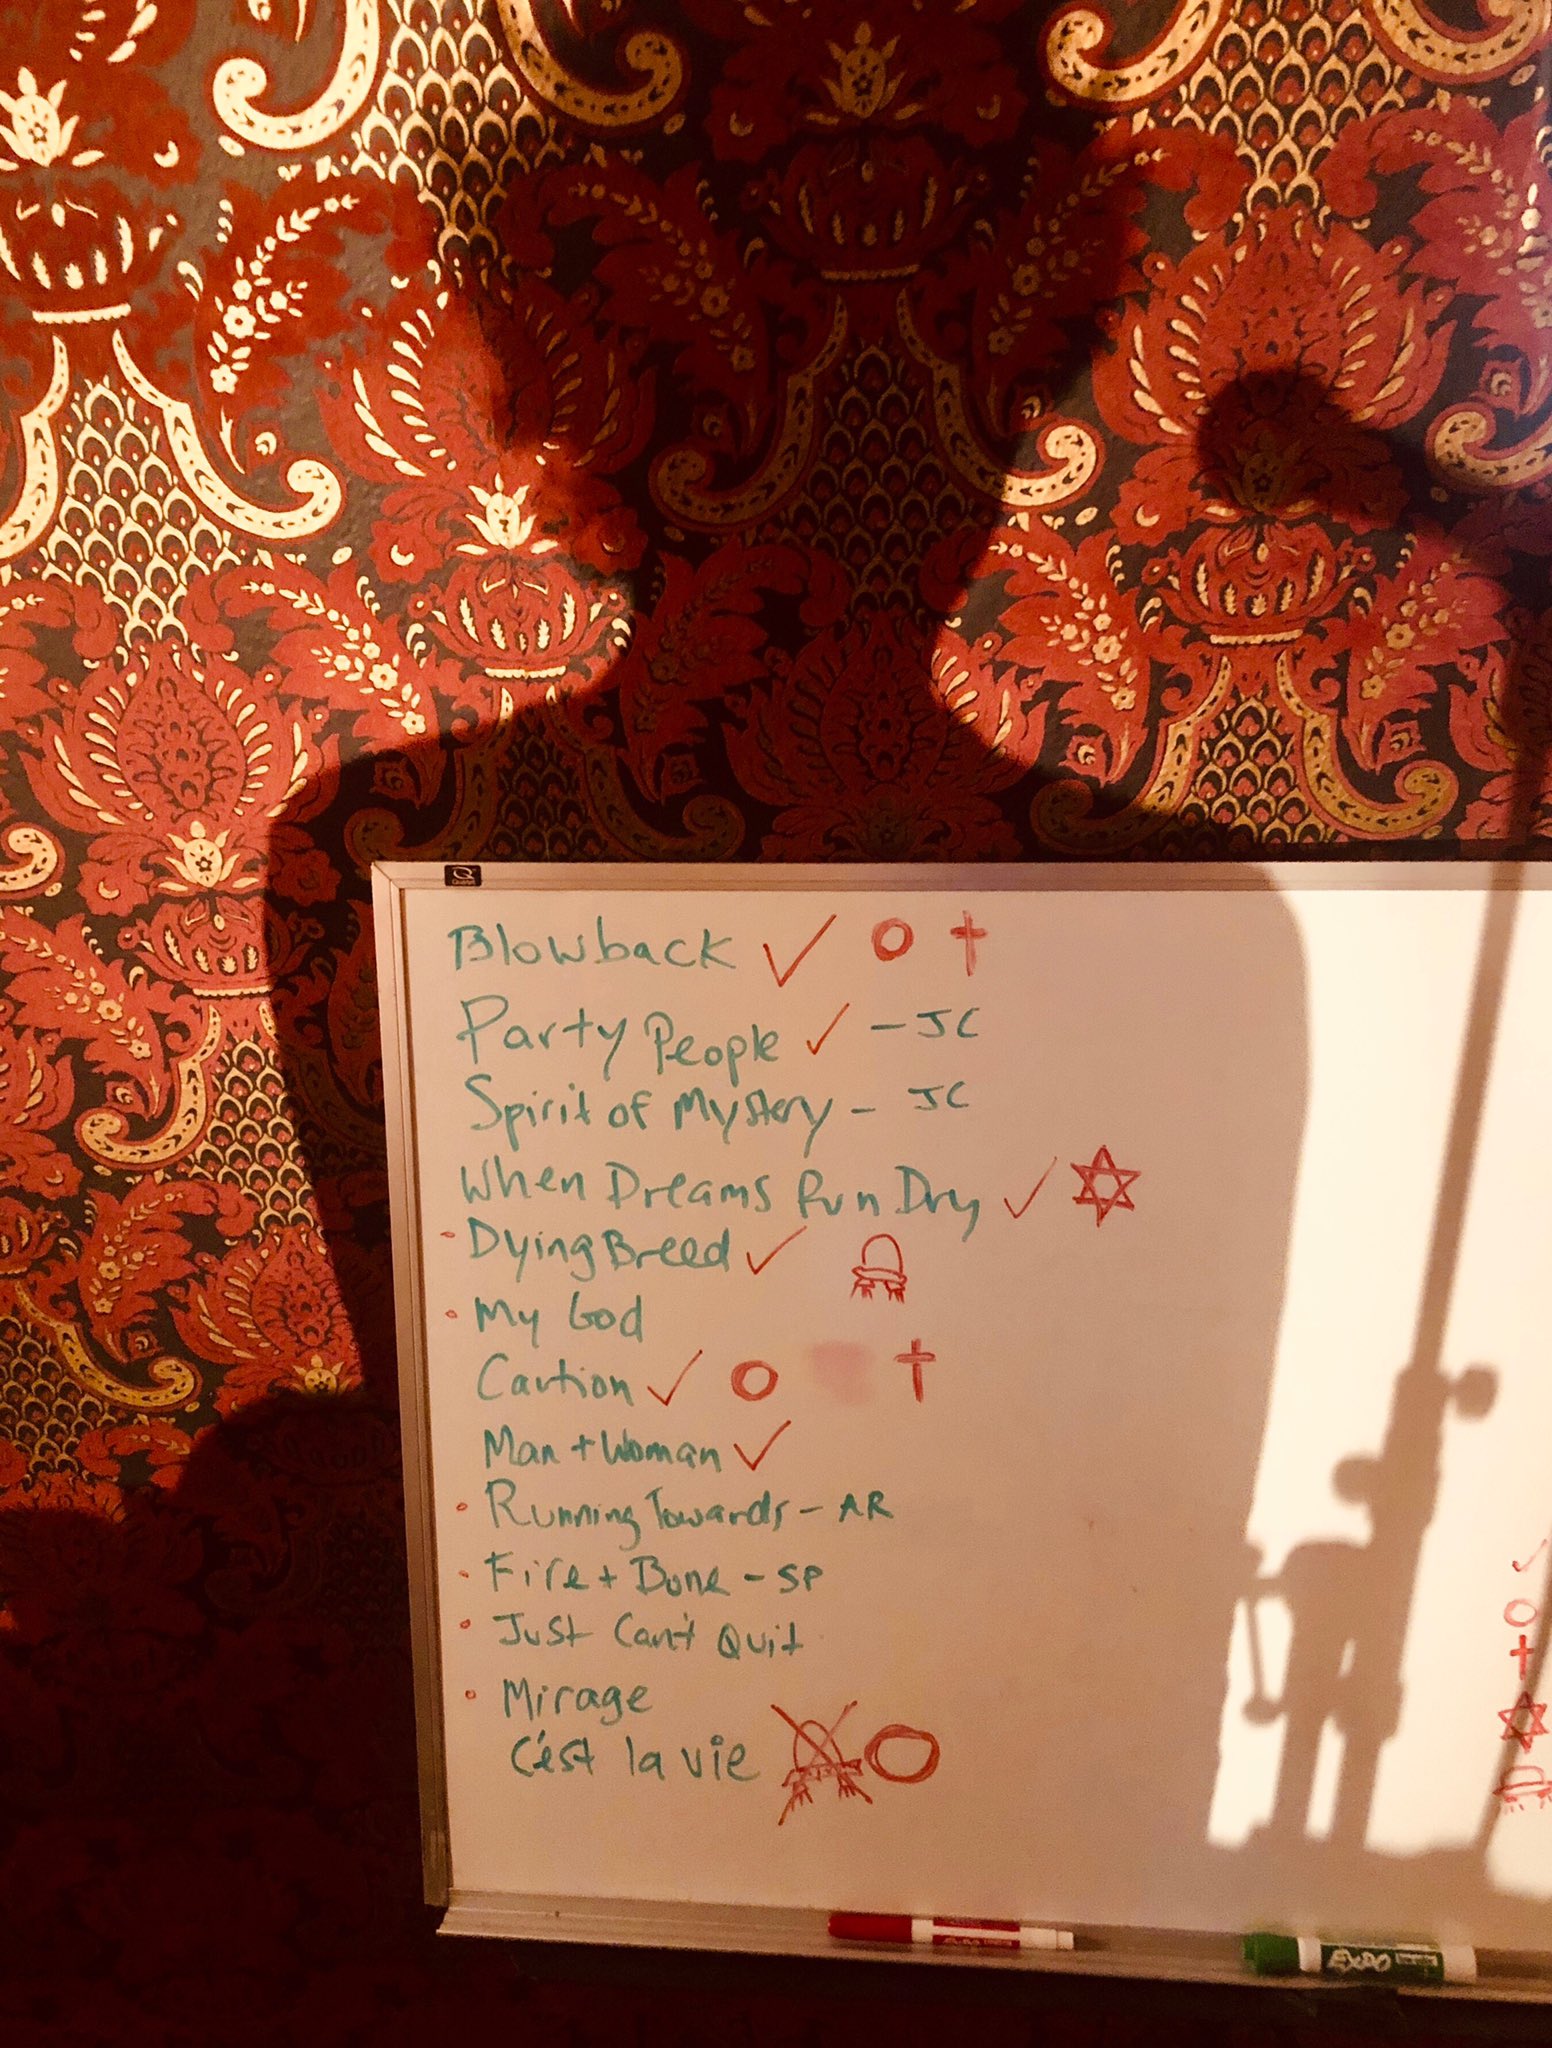 Quartet
Blowback ✓ O †
Party People ✓ - JC
Spirit of Mystery - JC
When Dreams Run Dry ✓ ✡
• Dying Breed ✓
• My God
Caution ✓ O †
Man + Woman ✓
• Running Towards - AR
• Fire + Bone - SP
• Just Can't Quit
• Mirage
C'est la vie O
EXPO